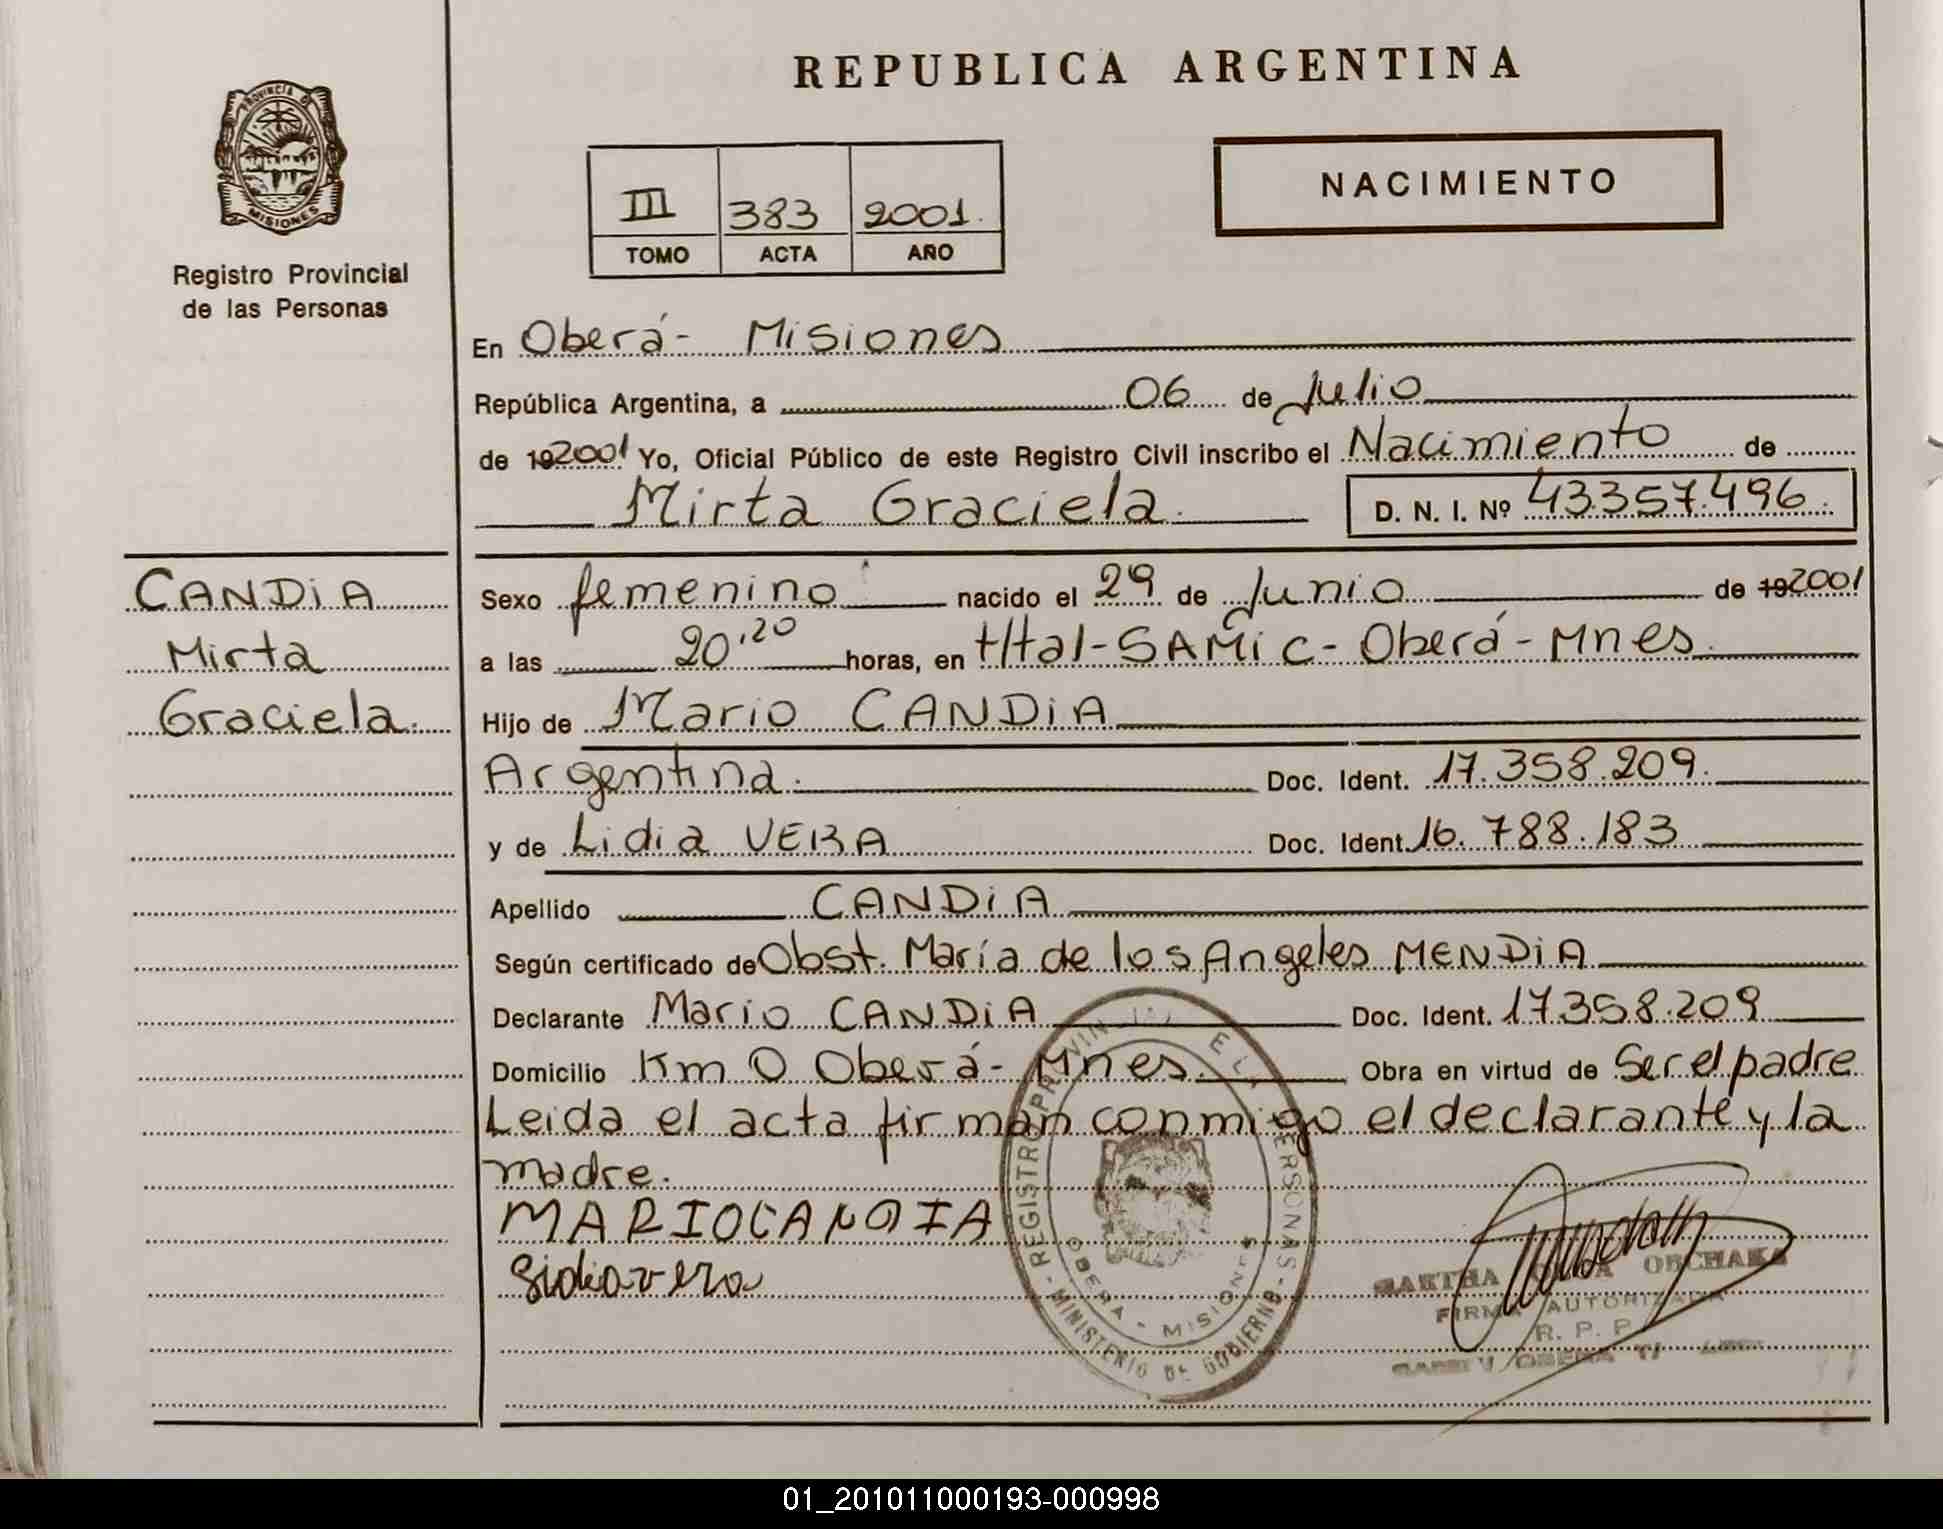 REPUBLICA ARGENTINA
PROVINCIA DE
MISIONES
Registro Provincial
de las Personas
III 383 2001.
TOMO ACTA AÑO
NACIMIENTO
En Oberá- Misiones
República Argentina, a 06 de Julio
de 192001 Yo, Oficial Público de este Registro Civil inscribo el Nacimiento de
Mirta Graciela. D. N. I. Nº 43.357.496.
CANDiA
Mirta
Graciela.
Sexo femenino nacido el 29 de Junio de 192001
a las 20,20 horas, en Htal-SAMiC-Oberá-Mnes.
Hijo de Mario CANDiA
Argentina. Doc. Ident. 17.358.209.
y de Lidia VERA Doc. Ident. 16.788.183
Apellido CANDiA
Según certificado de Obst. María de los Angeles MENDiA
Declarante Mario CANDiA Doc. Ident. 17.358.209
Domicilio Km 0 Oberá-Mnes. Obra en virtud de Ser el padre
Leida el acta firman conmigo el declarante y la
madre.
MARIO CANDIA
Lidia vera
REGISTRO PROVINCIAL DE LAS PERSONAS
MINISTERIO DE GOBIERNO
OBERA - MISIONES
OBCHAKA
FIRMA AUTORIZADA
R. P. P.
01_201011000193-000998